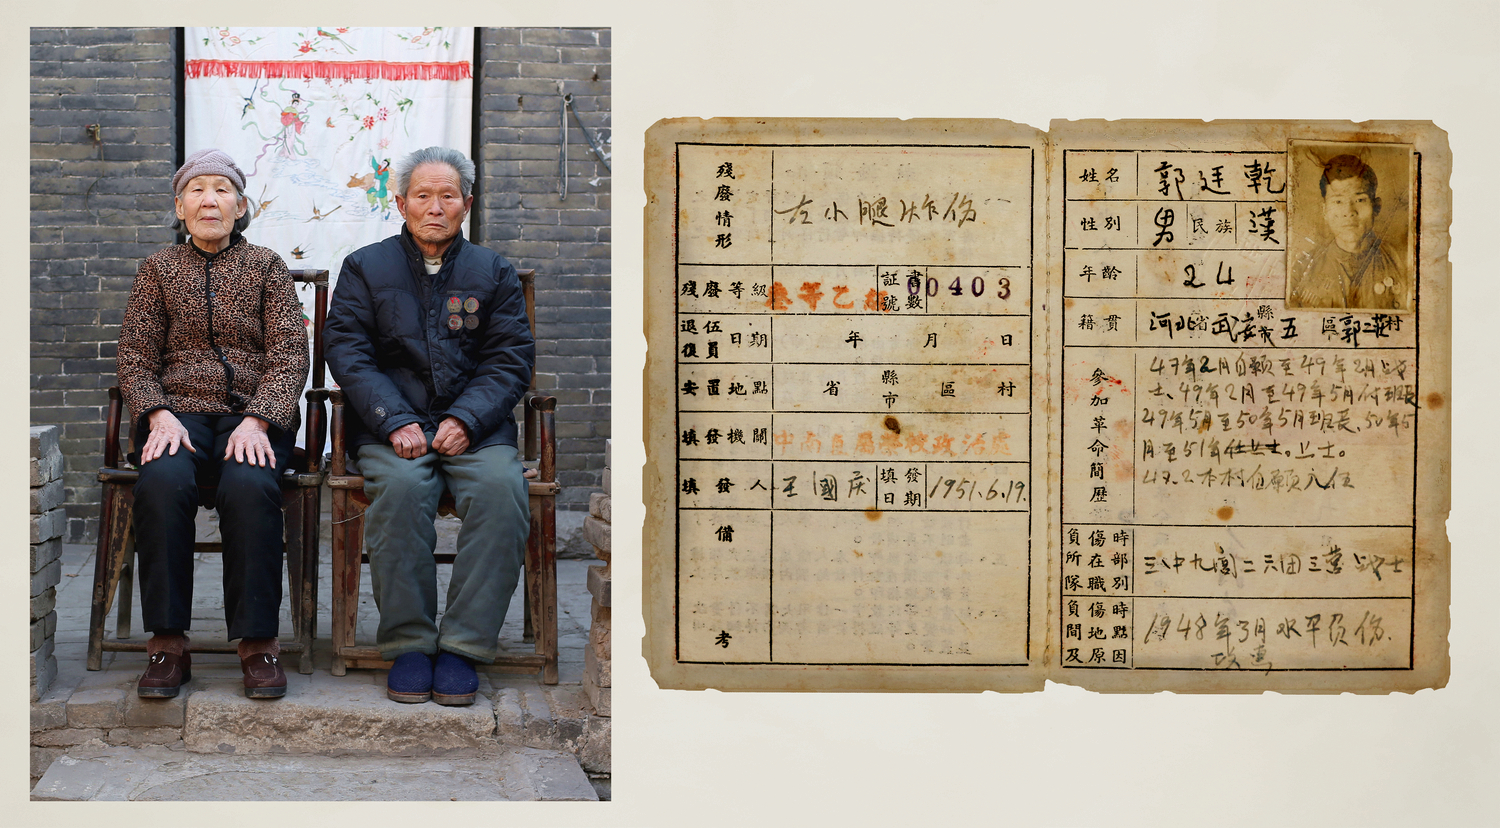 殘廢情形
左小腿炸伤
殘廢等級 叁等乙 証書號數 00403
退伍復員日期 年 月 日
安置地點 省 縣市 區 村
填發機關 中南軍 政治处
填發人 王國庆 填發日期 1951.6.19.
備考
姓名 郭廷乾
性別 男 民族 漢
年齡 24
籍貫 河北省武安縣市五區郭二莊村
參加革命簡歷
47年2月自願至49年2月战
士、49年2月至49年5月付班長
49年5月至50年5月班长、50年5
月至51年 士。
47.2本村自願入伍
負傷時所在部隊職別
三八中九 二六团三营战士
負傷時間地點及原因
1948年3月水平负伤.